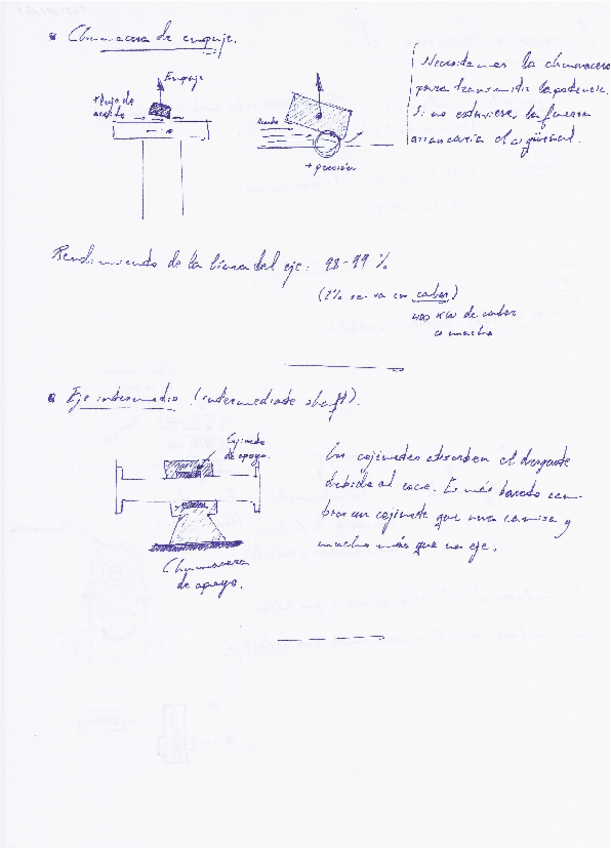 Chumacera de empuje.
Empuje
Flujo de
aceite
+ presión
Necesitamos la chumacera
para transmitir la potencia.
Si no estuviera, la fuerza
arrancaría el cigüeñal.
Rendimiento de la línea del eje: 98-99 %
(2% se va en calor)
400 KW de calor
es mucho
Eje intermedio (intermediate shaft).
Cojinete
de apoyo.
Chumacera
de apoyo.
Los cojinetes absorben el desgaste
debido al roce. Es más barato cam-
biar un cojinete que una camisa y
mucho más que un eje.